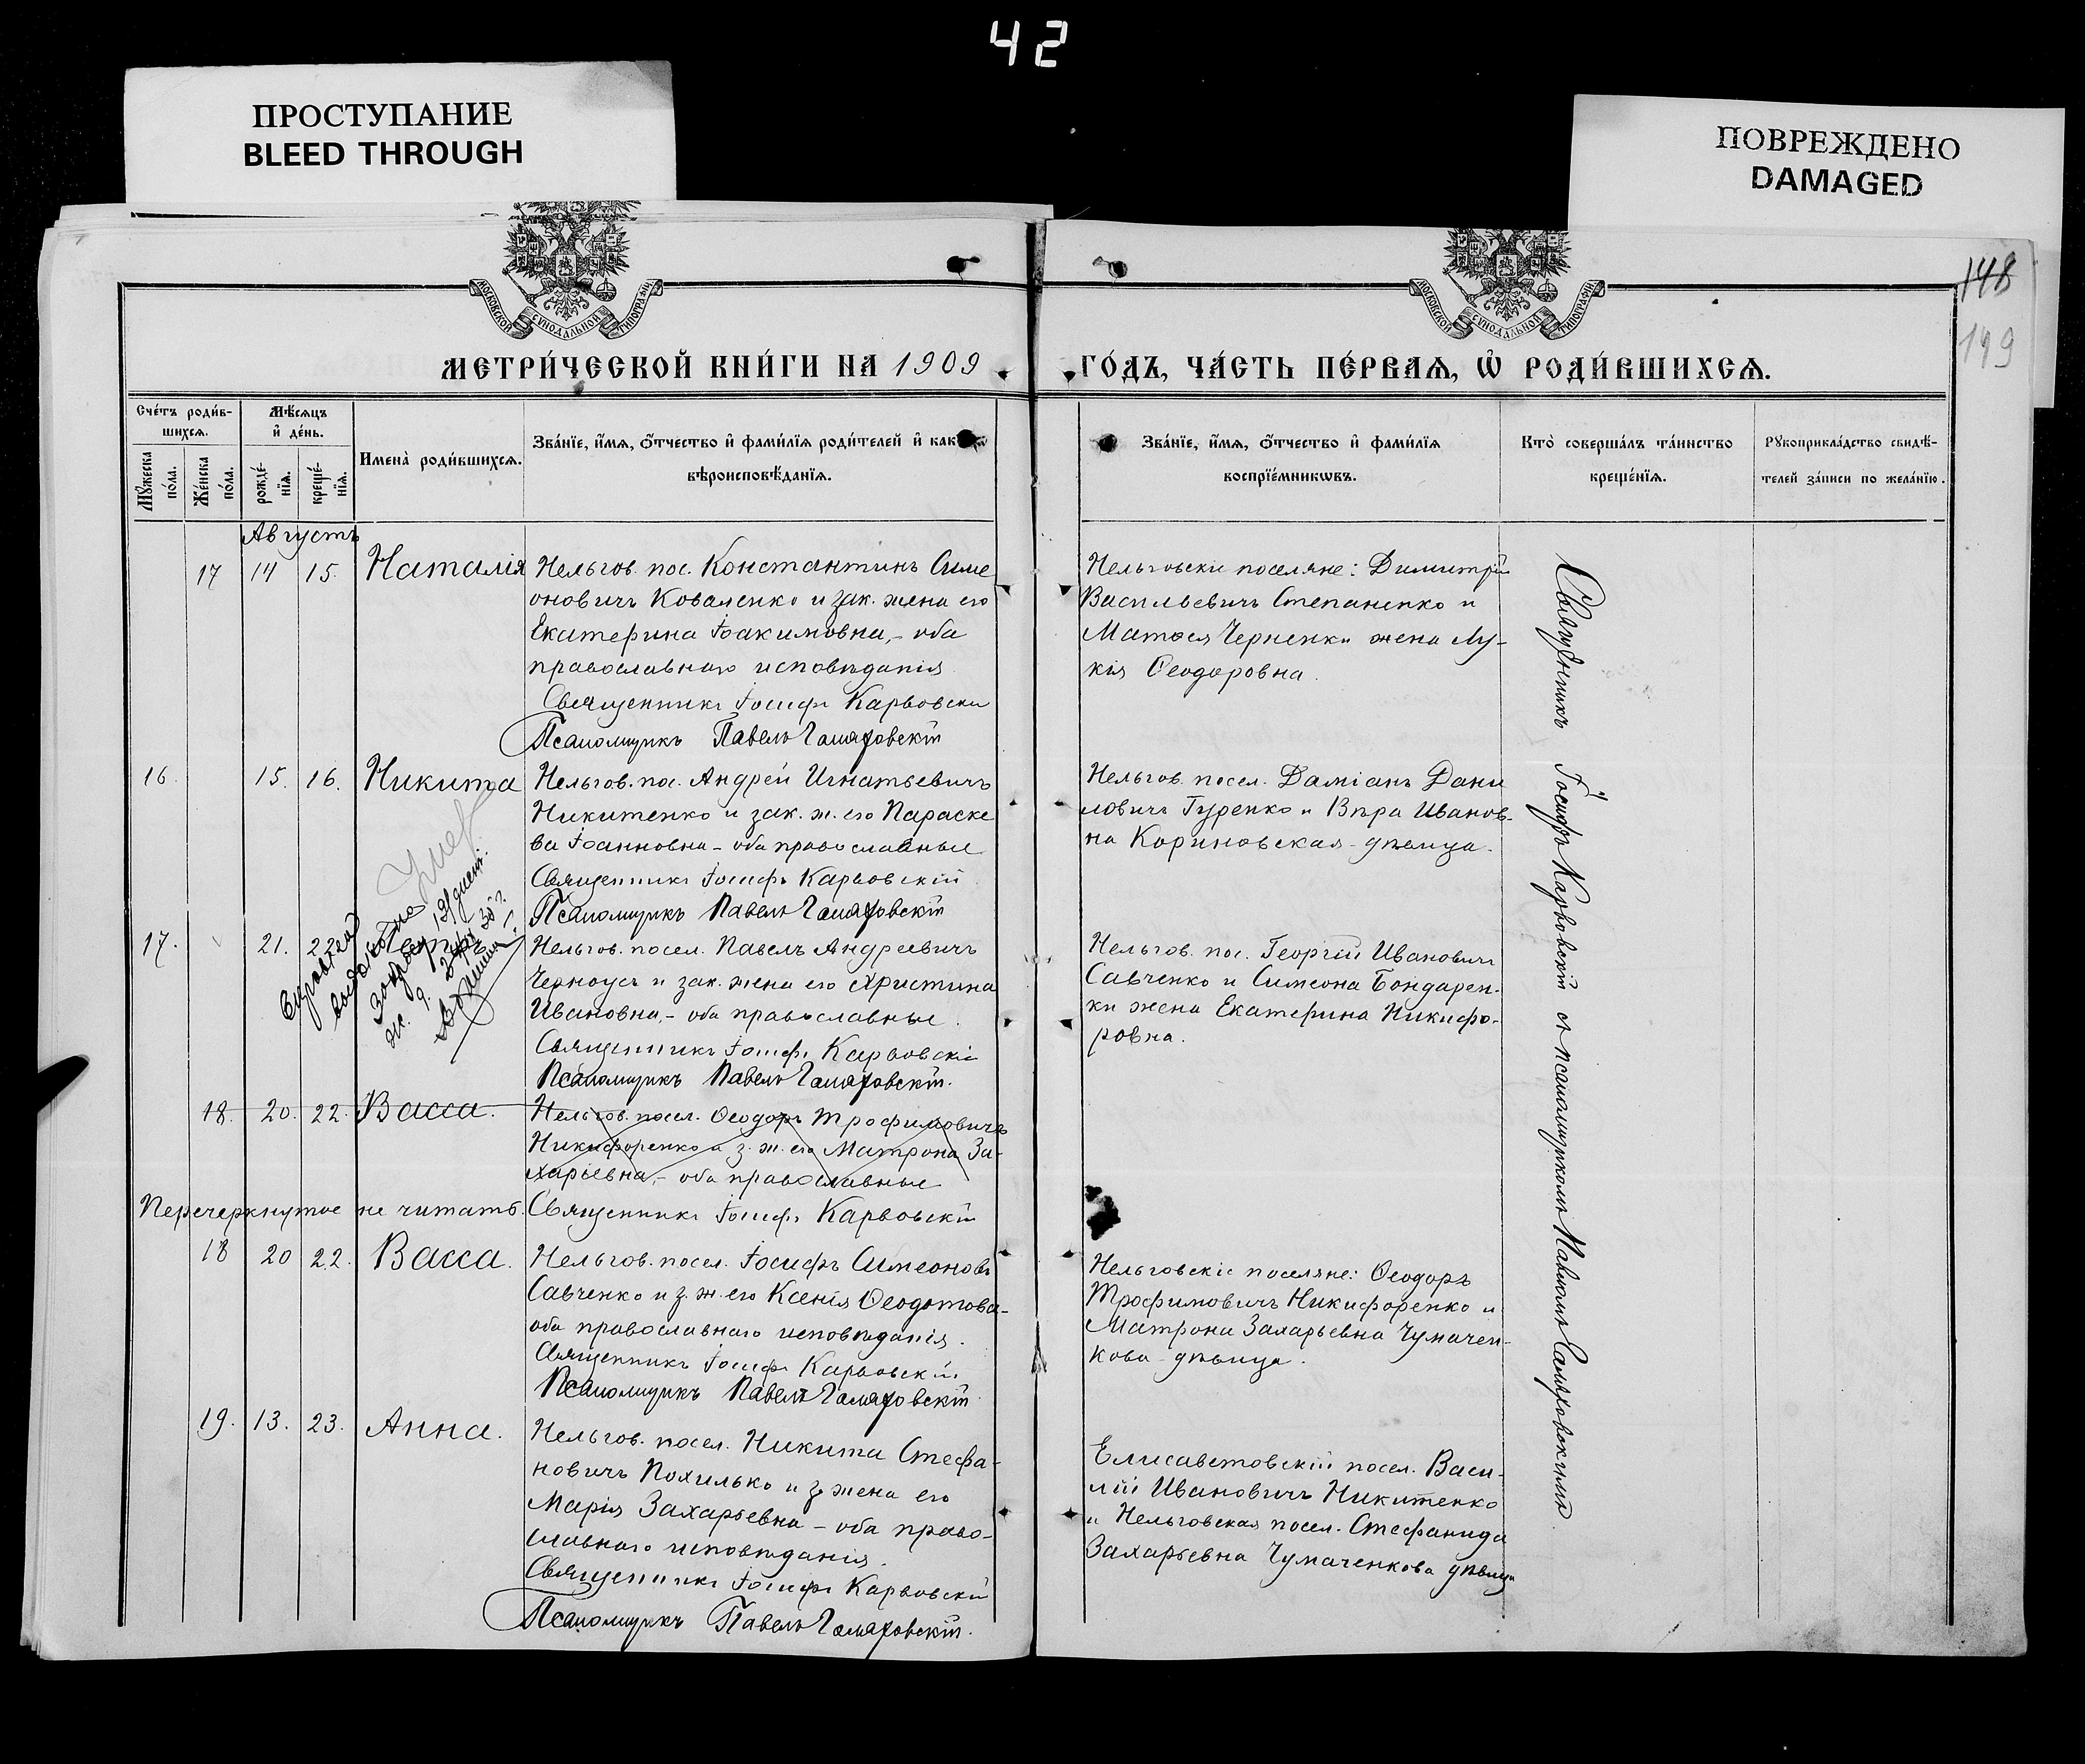 42
ПРОСТУПАНИЕ
BLEED THROUGH
ПОВРЕЖДЕНО
DAMAGED
МОСКОВСКОЙ СѴНОДАЛЬНОЙ ТИПОГРАФІИ
МОСКОВСКОЙ СѴНОДАЛЬНОЙ ТИПОГРАФІИ
148
149
МЕТРИ́ЧЕСКОЙ КНИ́ГИ НА 1909
ГО́ДЪ, ЧА́СТЬ ПЕ́РВАѦ, Ѡ҆ РОДИ́ВШИХСѦ.
Сче́тъ роди́в-
шихсѧ.
Мѣ́сѧцъ
и҆ де́нь.
Мꙋ́жеска по́ла.
Же́нска по́ла.
рожде́-
нїѧ.
креще́-
нїѧ.
Имена̀ роди́вшихсѧ.
Зва́нїе, и҆́мѧ, ѻ҆́тчество и҆ фами́лїѧ роди́телей и҆ как
вѣроисповѣ́данїѧ.
Зва́нїе, и҆́мѧ, ѻ҆́тчество и҆ фами́лїѧ
воспрїе́мникѡвъ.
Кто̀ соверша́лъ та́инство
креще́нїѧ.
Рꙋкоприкла́дство свидѣ́-
телей за́писи по жела́нїю.
Августъ
17 14 15. Наталія
Нельгов. пос. Константинъ Симе
оновичъ Коваленко и зак. жена его
Екатерина Іоакимовна, - оба
православнаго исповѣданія
Священникъ Іосифъ Карвовскій
Псаломщикъ Павелъ
Нельговскіе поселяне: Димитрій
Васильевичъ Степаненко и
Матѳея Черненки жена Лу-
кія Ѳеодоровна.
16. 15. 16. Никита
Нельгов. пос. Андрей Игнатьевичъ
Никитенко и зак. ж. его Параске
ва Іоанновна - оба православные
Священникъ Іосифъ Карвовскій
Псаломщикъ Павелъ
Нельгов. посел. Даміанъ Дани
ловичъ Гуренко и Вѣра Иванов-
на Кориновская - дѣвица.
Умер
17. 21. 22
Нельгов. посел. Павелъ Андреевичъ
Черноусъ и зак. жена его Христина
Ивановна, - оба православные.
Священникъ Іосифъ Карвовскій
Псаломщикъ Павелъ
Нельгов. пос. Георгій Ивановичъ
Савченко и Симеона Бондарен-
ки жена Екатерина Никифо-
ровна.
18. 20. 22. Васса.
Нельгов. посел. Ѳеодоръ Трофимовичъ
Никифоренко и з. ж. его Матрона За-
харіевна, - оба православные
Перечеркнутое не читать. Священникъ Іосифъ Карвовскій
18 20 22. Васса.
Нельгов. посел. Іосифъ Симеоновъ
Савченко и з. ж. его Ксенія Ѳеодотова -
оба православнаго исповѣданія.
Священникъ Іосифъ Карвовскій
Псаломщикъ Павелъ
Нельговскіе поселяне: Ѳеодоръ
Трофимовичъ Никифоренко и
Матрона Захарьевна Чумачен-
кова - дѣвица.
19. 13. 23. Анна.
Нельгов. посел. Никита Стефа-
новичъ Похилько и з. жена его
Марія Захарьевна - оба право-
славнаго исповѣданія.
Священникъ Іосифъ Карвовскій
Псаломщикъ Павелъ
Елисаветовскій посел. Васи-
лій Ивановичъ Никитенко
и Нельговская посел. Стефанида
Захарьевна Чумаченкова дѣвица
Священникъ Іосифъ Карвовскій съ псаломщикомъ Павломъ